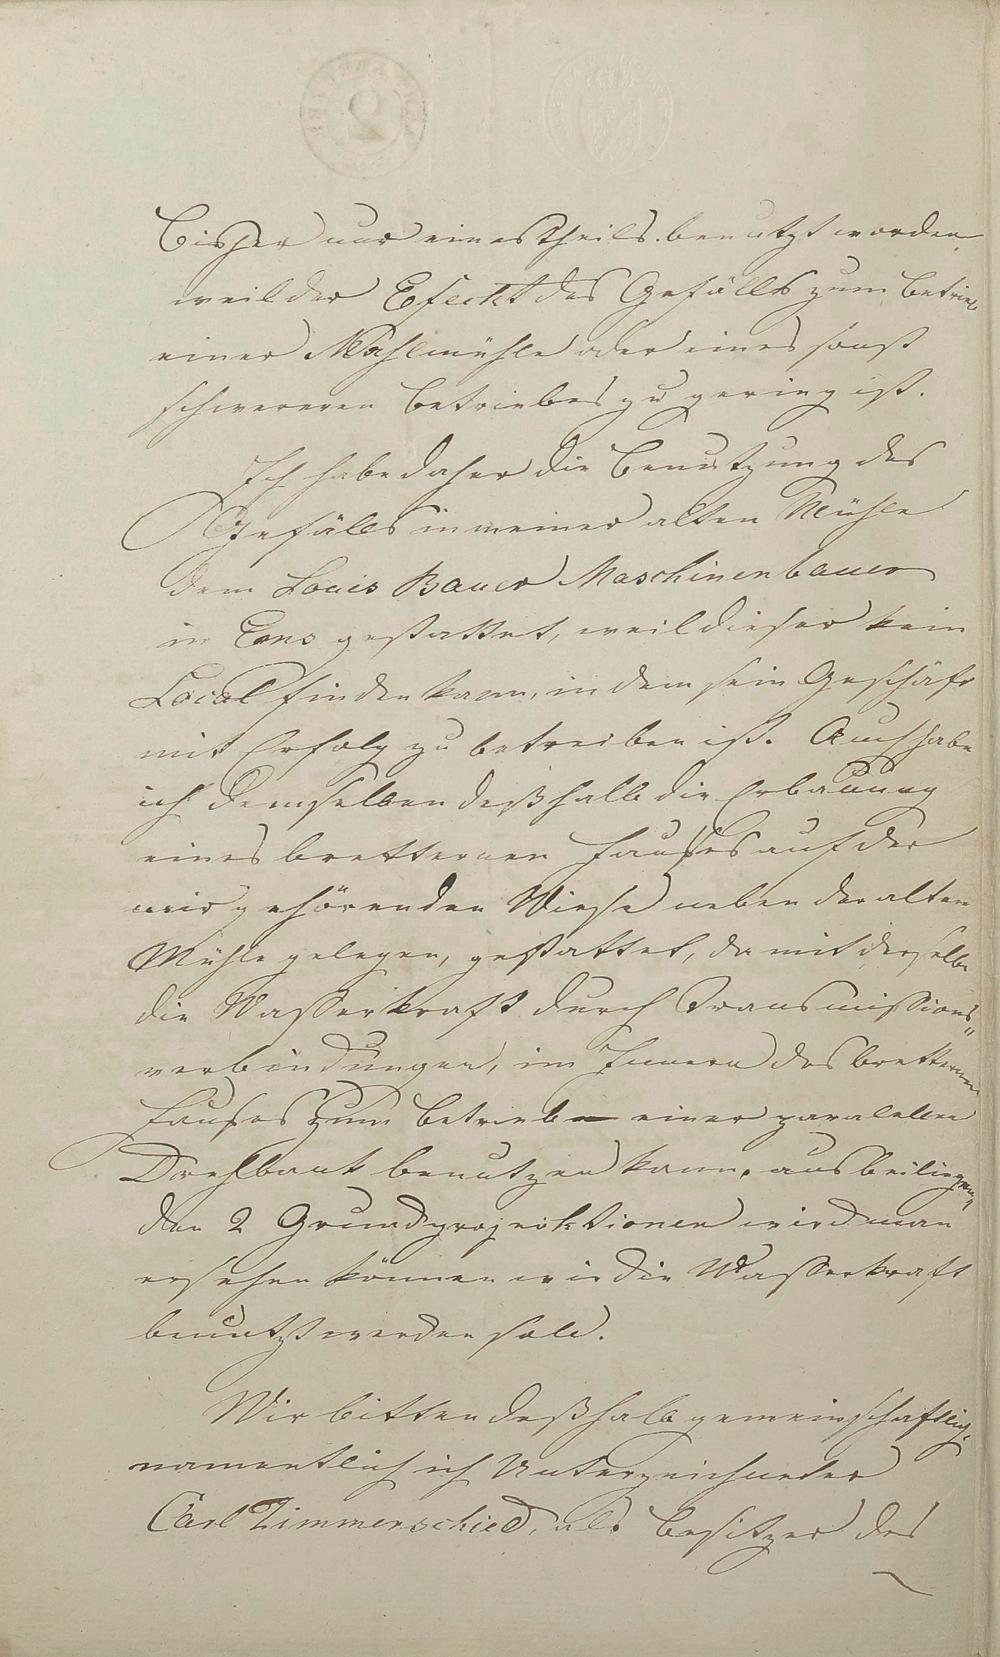 bisher nur einestheils benutzt worden
weil der Efeckt des Gefälls zum Betrieb
einer Mahlmühle oder eines sonst
schwereren Betriebes zu gering ist.
Ich habe daher die Benutzung des
Gefälls in meiner alten Mühle
dem Louis Bauer Maschinenbauer
in Ems gestattet, weil dieser kein
Local finden kann, in dem sein Geschäft
mit Erfolg zu betreiben ist. Auch habe
ich demselben deßhalb die Erbauung
eines bretternen Hauses auf der
mir gehörenden Wiese neben der alten
Mühle gelegen, gestattet, damit derselbe
die Wasserkraft durch Transmissions"
verbindungen, im Innern des bretternen
Hauses zum Betriebe einer paralellen
Drehbank benutzen kann. aus beiliegen"
den 2 Grundprojecktionen wird man
ersehen können wie die Wasserkraft
benutzt werden soll.
Wir bitten deßhalb gemeinschaftlich,
namentlich ich Unterzeichneter
Carl Zimmerschied, als Besitzer des
2